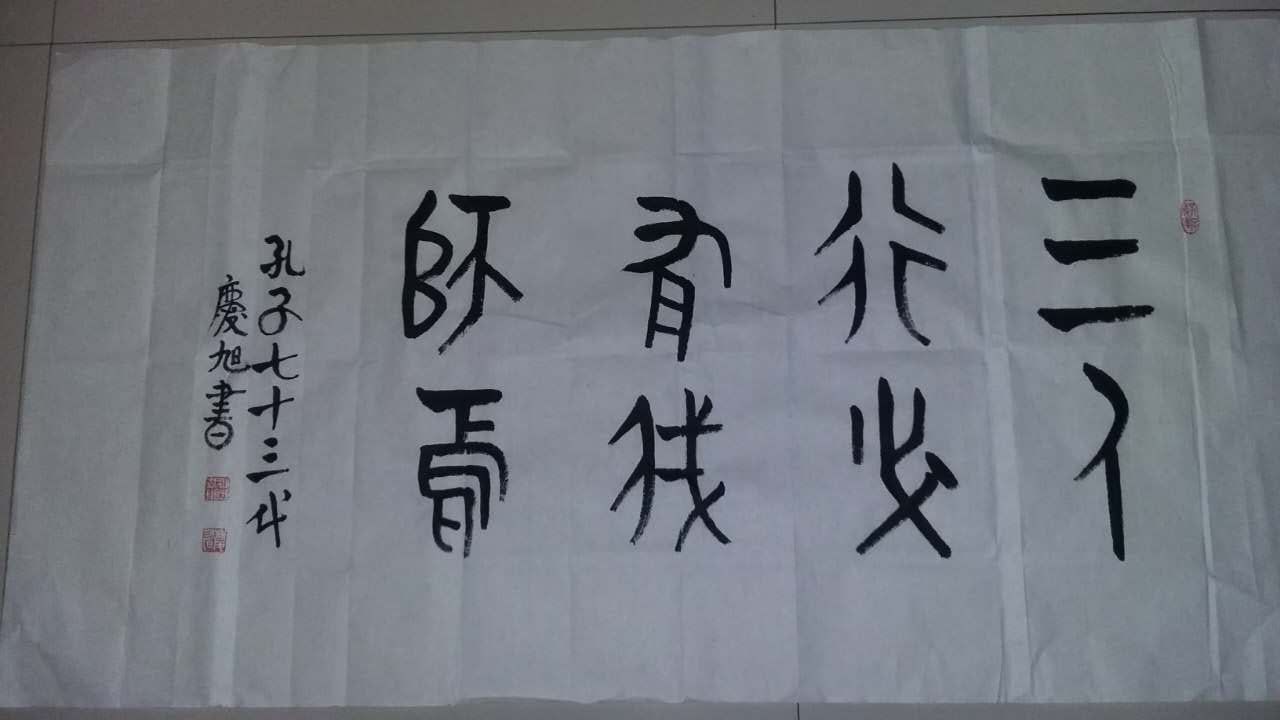 三人
行必
有我
師焉
孔子七十三代
慶旭書